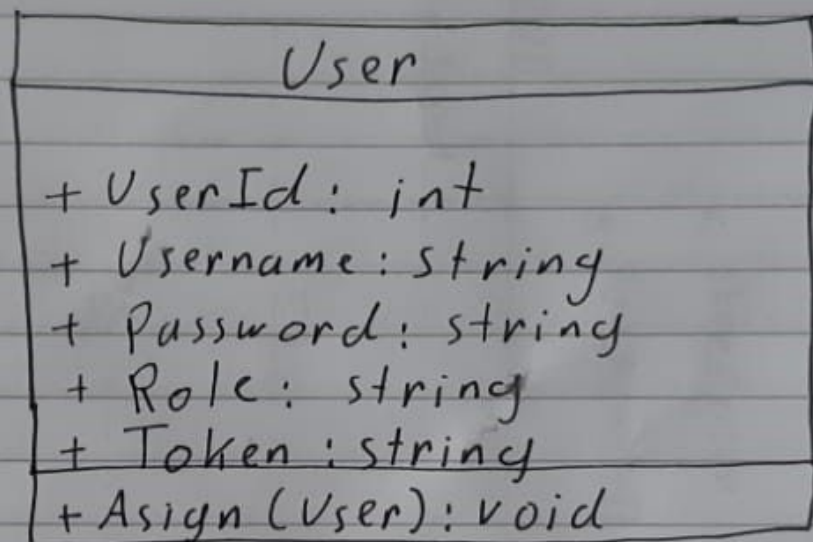 User
+ UserId: int
+ Username: string
+ Password: string
+ Role: string
+ Token: string
+ Asign (User): void